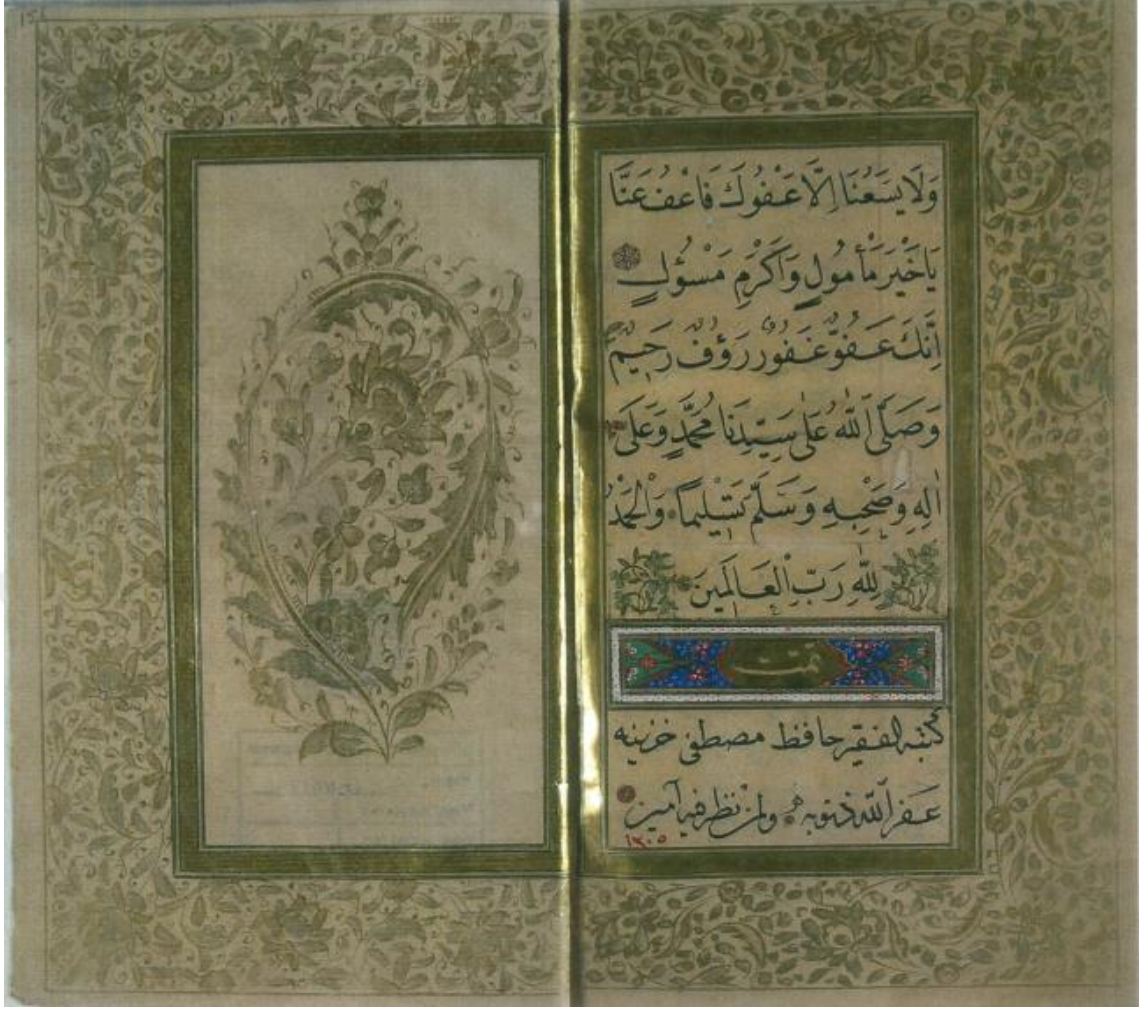 وَلَا يَسَعُنَا اِلَّا عَفْوُكَ فَاعْفُ عَنَّا
يَا خَيْرَ مَأْمُولٍ وَاَكْرَمَ مَسْؤُلٍ
اِنَّكَ عَفُوٌّ غَفُورٌ رَؤُفٌ رَحِيمٌ
وَصَلَّى اللّٰهُ عَلٰى سَيِّدِنَا مُحَمَّدٍ وَعَلَى
اٰلِهِ وَصَحْبِهِ وَسَلَّمَ تَسْلِيمًا وَالْحَمْدُ
لِلّٰهِ رَبِّ الْعَالَمِينَ
تمت
كتبه الفقير حافظ مصطفى خزينه
غفر الله ذنوبه ولمن نظر فيه آمين
١٣٠٥